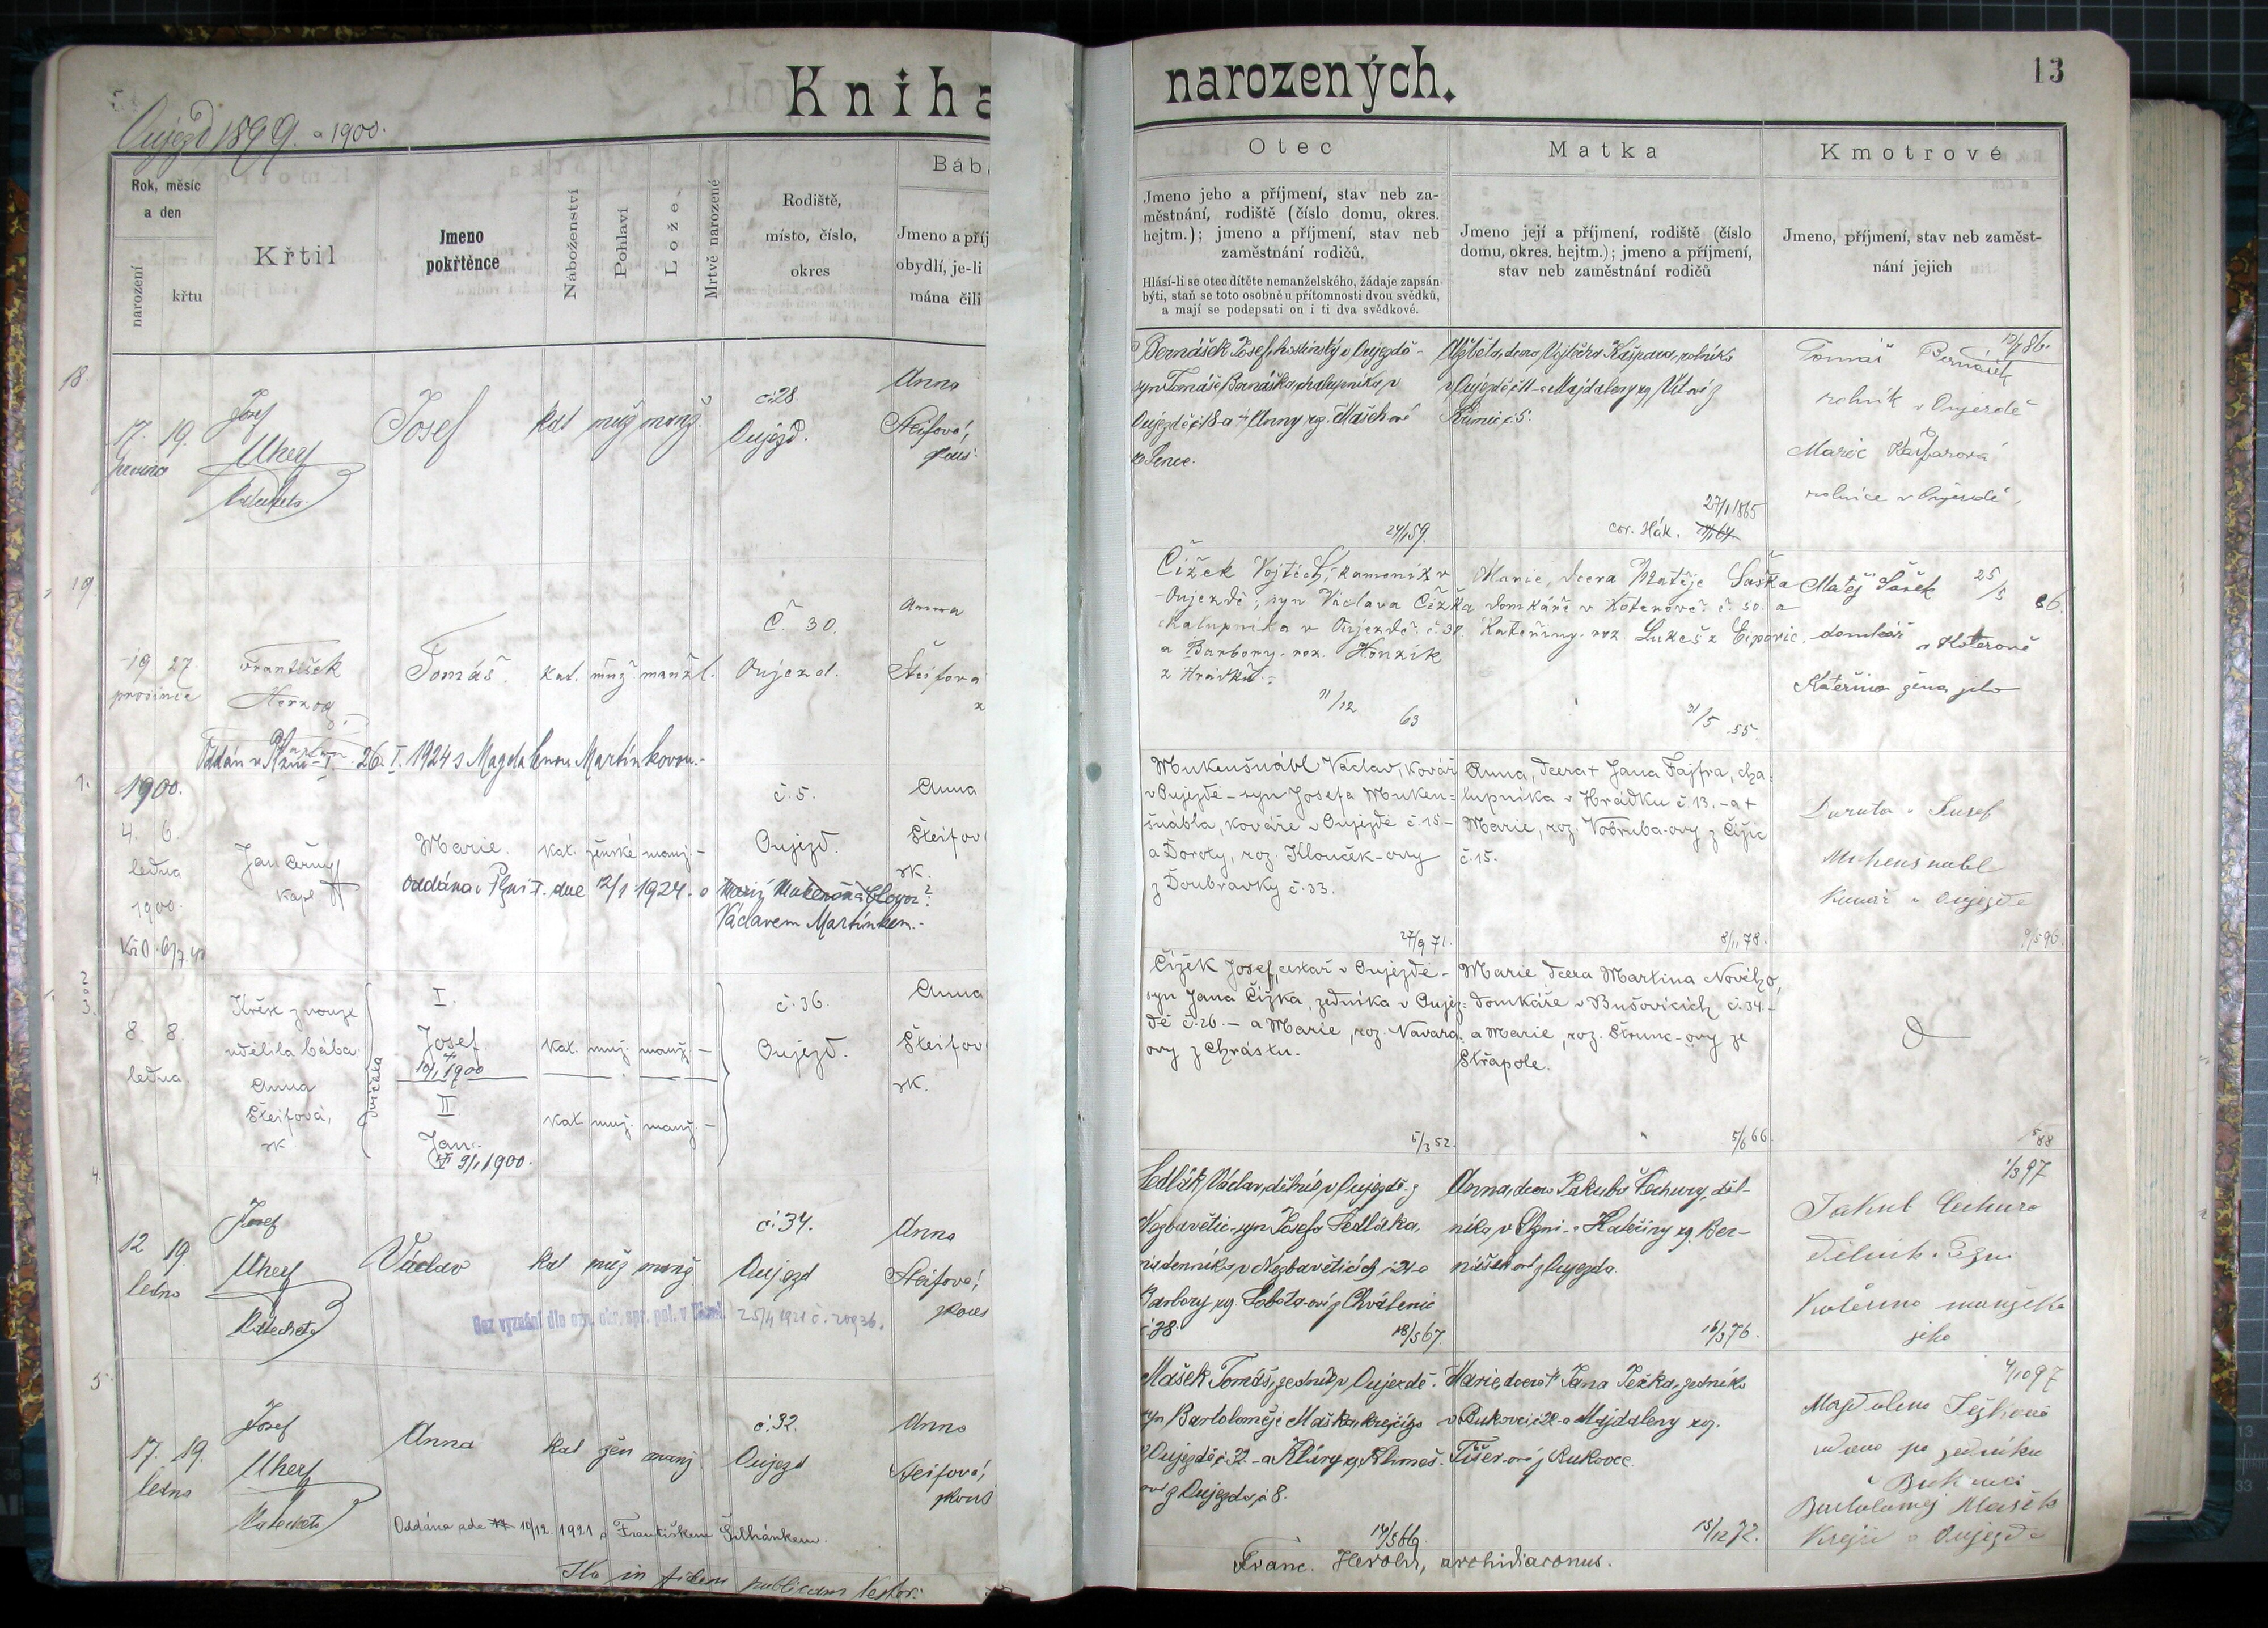 Kniha
narozených.
13
Oujezd 1899. a 1900.
Rok, měsíc
a den
narození
křtu
Křtil
Jmeno
pokřtěnce
Náboženství
Pohlaví
Lože
Mrtvě narozené
Rodiště,
místo, číslo,
okres
Báb
Jmeno a příj
obydlí, je-li
mána čili
Otec
Jmeno jeho a příjmení, stav neb za-
městnání, rodiště (číslo domu, okres.
hejtm.); jmeno a příjmení, stav neb
zaměstnání rodičů.
Hlásí-li se otec dítěte nemanželského, žádaje zapsán
býti, staň se toto osobně u přítomnosti dvou svědků,
a mají se podepsati on i ti dva svědkové.
Matka
Jmeno její a příjmení, rodiště (číslo
domu, okres. hejtm.); jmeno a příjmení,
stav neb zaměstnání rodičů
Kmotrové
Jmeno, příjmení, stav neb zaměst-
nání jejich
18.
17. 19.
prosince
Josef
Uherf
katecheta
Josef
kat muž manž.
č. 28.
Oujezd.
Anna
Steifová,
zkouš
Bernášek Josef, hostinský v Oujezdě -
syn Tomáše Bernáška, chalupníka v
Oujezdě č. 18 - a Anny roz. Maškové
z Senec.
24/1 59.
Alžběta, dcera Vojtěcha Kašpara, rolníka
v Oujezdě č. 11 - a Majdaleny roz. Vítoví z
č. 5.
27/1 1865
cor. Hák.
Tomáš Bernášek
rolník v Oujezdě
Marie Kašparová
rolnice v Oujezdě,
19.
19 27.
prosince
František
Herzog
Tomáš.
kat. muž. manžl.
Č. 30.
Oujezd.
Anna
Šteifova
Oddán v Plzni-I. 26. I. 1924 s Magdalenou Martínkovou.-
Čížek Vojtěch, kameník v
Oujezdě; syn Václava Čížka
chalupníka v Oujezdě č. 30
a Barbory. roz. Honzík
z Hrádku.
31/12 63
Marie, dcera Matěje Saška
domkáře v Koterově. č. 50. a
Kateřiny. roz. Lukeš z Eipovic.
31/5 55
Matěj Sašek 25/5 86.
domkář
v Koterově
Kateřina žena jeho
1.
1900.
4. 6.
ledna
1900.
Jan Černý
kapl
Marie.
kat. ženské manž. -
č. 5.
Oujezd.
Anna
Šteifov
zk.
Oddána v Plzni I. dne 12/1 1924. s
Václavem Martínkem.-
Mukenšnábl Václav, kovář
v Oujezdě - syn Josefa Muken=
šnábla, kováře v Oujezdě č. 15.-
a Doroty, roz. Klouček-ovy
z Doubravky č. 33.
27/9 71.
Anna, dcera + Jana Fajfra, cha=
lupníka v Hrádku č. 13. - a +
Marie, roz. Vobruba-ovy z Čižic
č. 15.
8/11 78.
Dorota a Josef
Mukenšnabl
Kovář v Oujezdě
2.
3.
8. 8.
ledna.
Křest z nouze
udělila bába
Anna
Šteifová,
zk.
dvojčata
I.
Josef
10/1 1900
kat. muž. manž. -
II
Jan.
9/1 1900.
kat. muž. manž. -
č. 36.
Oujezd.
Anna
Šteifov
zk.
Čížek Josef, cestář v Oujezdě -
syn Jana Čížka, zedníka v Oujez=
dě č. 26. - a Marie, roz. Navara-
ovy z Chrástu.
5/3 52.
Marie dcera Martina Nového,
domkáře v Bušovicích č. 34.-
a Marie, roz. Štrunc-ovy ze
Střapole.
5/6 66.
4.
12 19.
ledna
Josef
Uherf
katecheta
Václav
kat muž manž
č. 34.
Oujezd
Anna
Steifová,
zkouš
Bez vyznání dle ozn. okr. spr. pol. v Plzni. 25/4 1921 č. 20936.
Sedlák, Václav, dělník, v Oujezdě z
Nezbavětic - syn Josefa Sedláka,
nádenníka, v Nezbavěticích č. 24 - a
Barbory, roz. Sobota-oví z Chválenic
č. 38.
18/5 67.
Anna, dcera Jakuba Čechury, děl-
níka v Plzni - a Kateřiny roz. Ber-
nášek oví z Oujezda.
16/3 76.
1/3 97
Jakub Čechura
dělník v Plzni
Kateřina manželka
jeho
5.
17. 19.
ledna
Josef
Uherf
katecheta
Anna
kat žen manž
č. 32.
Oujezd
Anna
Steifová,
zkouš
Oddána zde 10/12. 1921 s Františkem Šilhánkem.
Mašek Tomáš, zedník, v Oujezdě.
syn Bartoloměje Maška, krejčího
v Oujezdě č. 32. - a Kláry roz. Klimeš-
oví z Oujezda č. 8.
Marie, dcera + Jana Ježka, zedníka
v Bukovci č. 22 - a Majdaleny roz.
Tišer-oví z Bukovce.
15/12 72.
4/10 97
Magdalena Ježková
vdova po zedníku
v Bukovci
Bartoloměj Mašek
Krejčí v Oujezdě
Ita in fidem publicam testor:
Franc. Herold, archidiaconus.